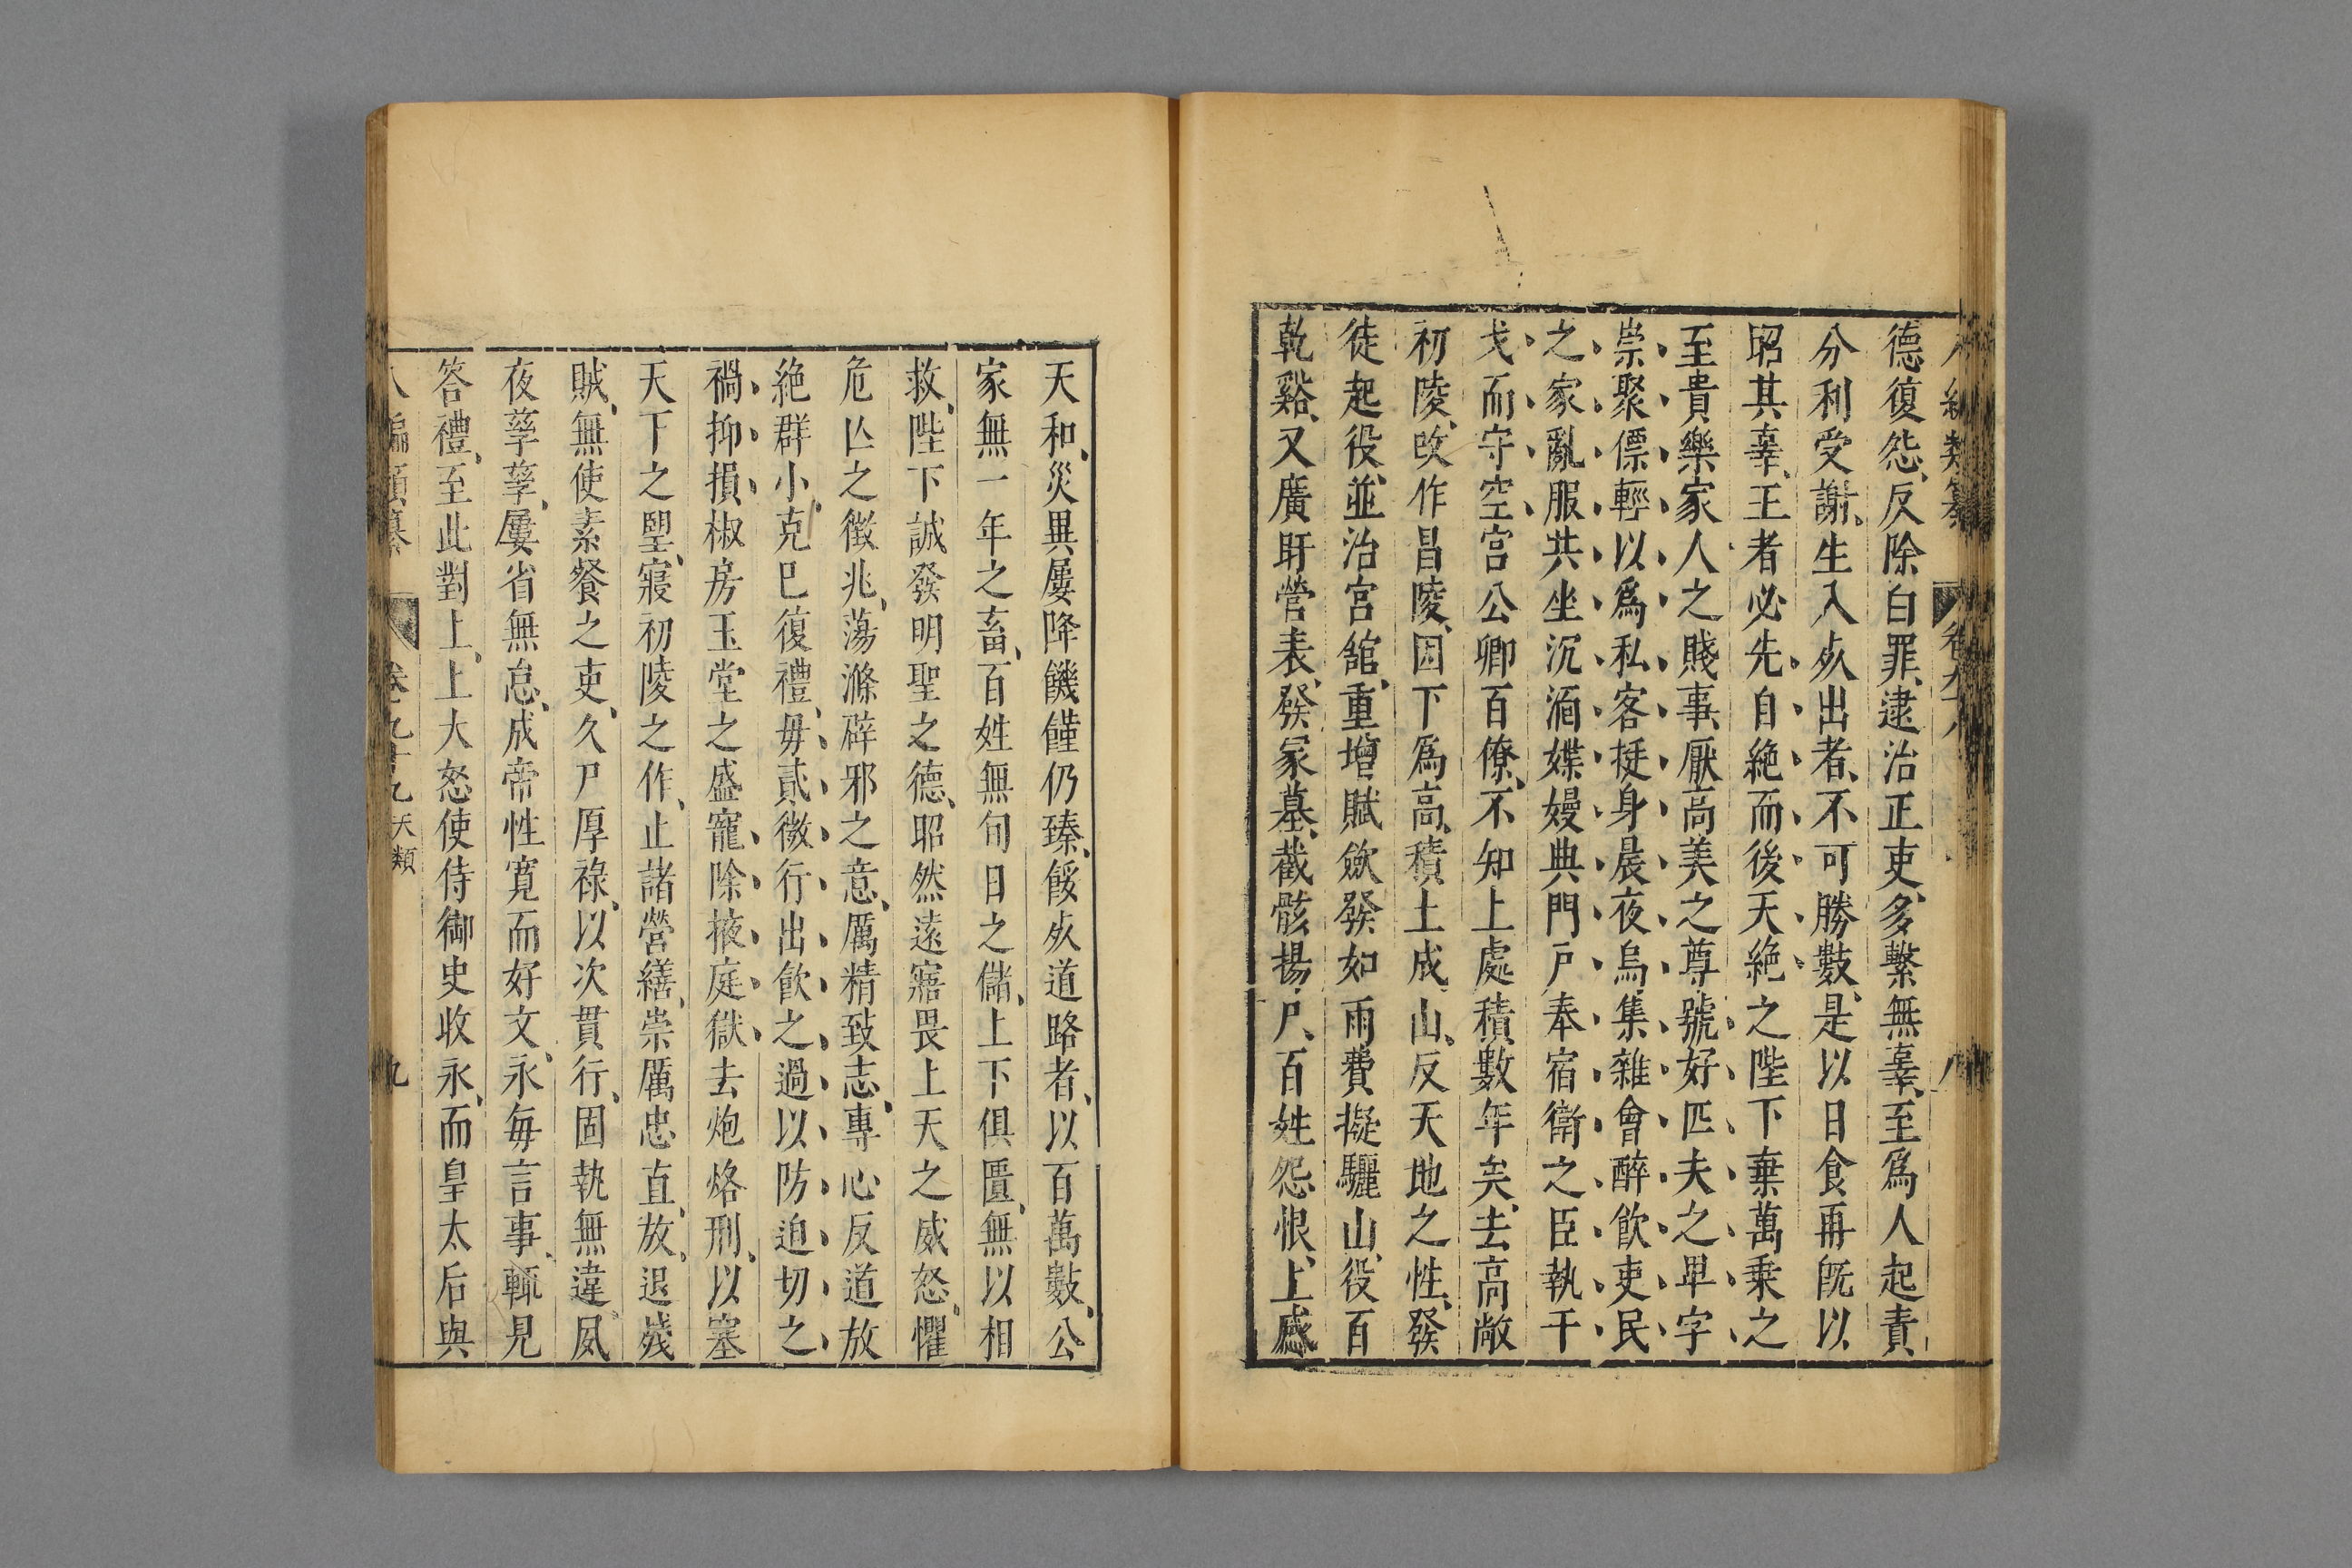 德復怨、反除白罪、逮治正吏、多繫無辜、至爲人起責
分利受謝、生入㱙出者、不可勝數、是以日食再旣以
昭其辜、王者必先自絶而後天絶之陛下棄萬乗之
至貴樂家人之賤事、厭高美之尊號好匹夫之卑字
崇聚僄輕以爲私客挺身晨夜烏集雜會醉飮吏民
之家亂服共坐沉湎媟嫚典門戶奉宿衛之臣執干
戈而守空宮公卿百僚、不知上處積數年矣、去高敞
初陵、攺作昌陵、因下爲高、積土成山、反天地之性、發
徒起役、並治宮舘、重增賦斂發如雨費擬驪山、役百
乾谿、又廣盱營表、發冢墓、截骸揚尸、百姓怨恨、上感
天和、災異屢降饑饉仍臻、餒㱙道路者、以百萬數、公
家無一年之畜、百姓無旬日之儲、上下俱匱、無以相
救、陛下誠發明聖之德、昭然遠寤畏上天之威怒、懼
危亾之徴兆、蕩滌辟邪之意、厲精致志、專心反道放
絶群小、克巳復禮、毋貳微行出飮之過以防迫切之
禍抑損椒房玉堂之盛寵除掖庭獄去炮烙刑、以塞
天下之朢、寢初陵之作、止諸營繕、崇厲忠直、放、退殘
賊、無使素餐之吏、久尸厚祿、以次貫行、固執無違、夙
夜孳孳、屢省無怠、成帝性寛而好文、永每言事、輒見
答禮、至此對上、上大怒使侍御史收永、而皇太后與
八編類纂 卷之九十九 天類 九